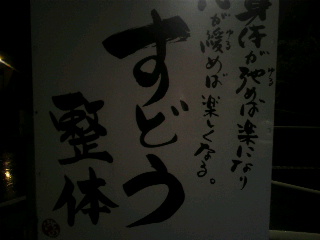 身体が弛めば楽になり
ゆる
心が緩めば楽しくなる。
ゆる
すどう
整体